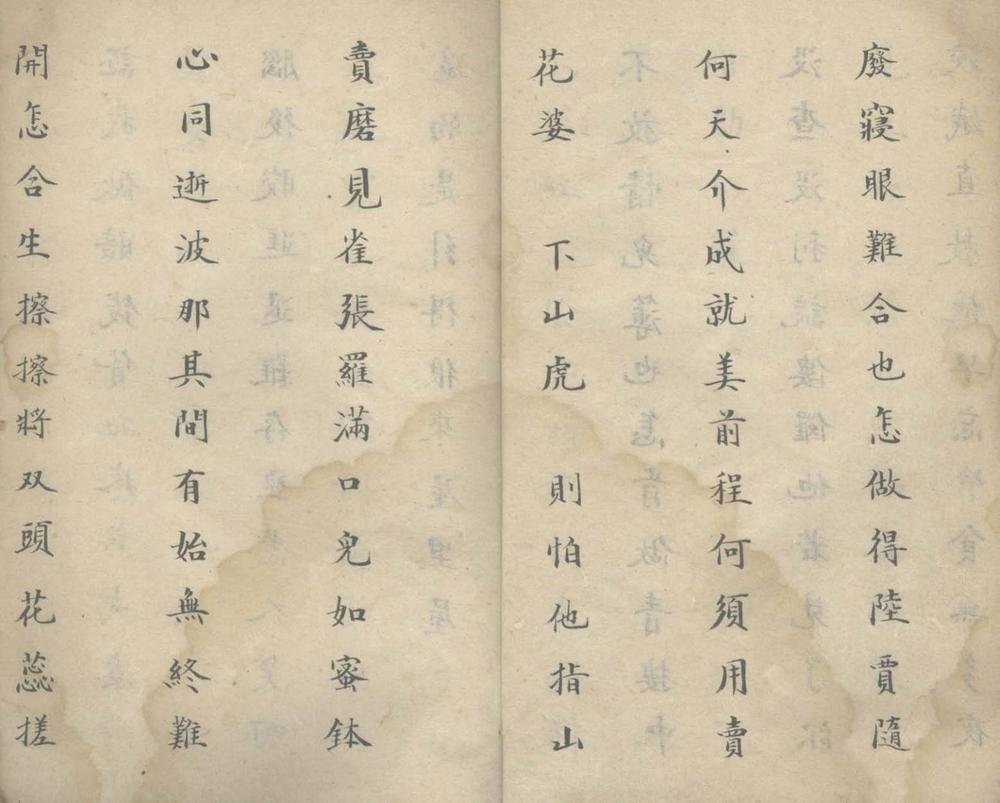 廢寢眼難合也怎做得陸賈隨
何天介成就美前程何須用賣
花婆　下山虎　則怕他指山
賣磨見雀張羅滿口兒如蜜鉢
心同逝波那其間有始無終難
開怎合生擦擦將双頭花蕊搓